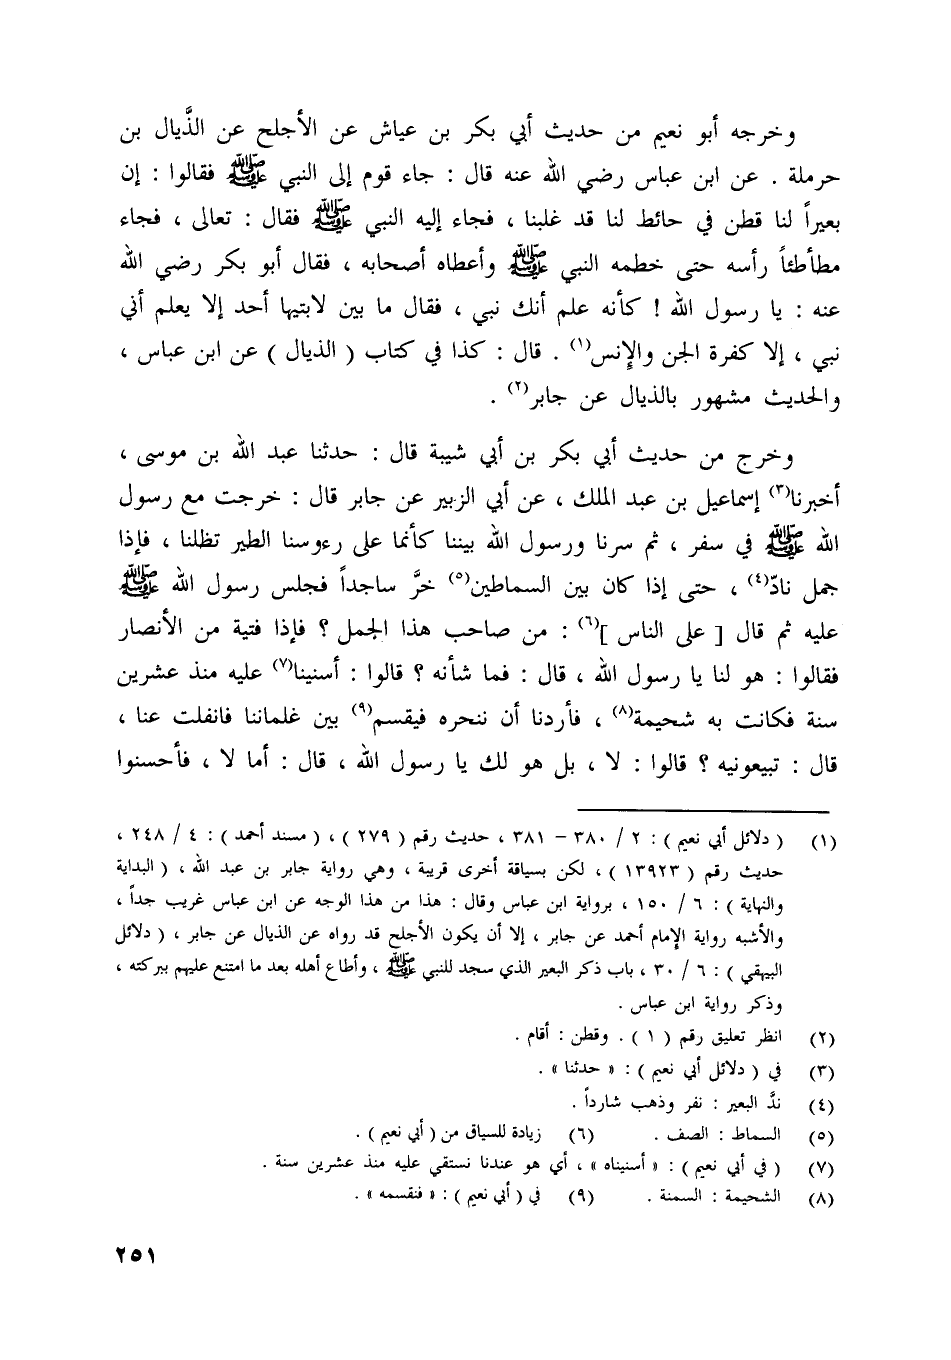 وخرجه أبو نعيم من حديث أبي بكر بن عياش عن الأجلح عن الذَّيال بن
حرملة . عن ابن عباس رضي الله عنه قال : جاء قوم إلى النبي ﷺ فقالوا : إن
بعيراً لنا قطن في حائط لنا قد غلبنا ، فجاء إليه النبي ﷺ فقال : تعالى ، فجاء
مطأطئاً رأسه حتى خطمه النبي ﷺ وأعطاه أصحابه ، فقال أبو بكر رضي الله
عنه : يا رسول الله ! كأنه علم أنك نبي ، فقال ما بين لابتيها أحد إلا يعلم أني
نبي ، إلا كفرة الجن والإنس(١) . قال : كذا في كتاب ( الذيال ) عن ابن عباس ،
والحديث مشهور بالذيال عن جابر(٢) .
وخرج من حديث أبي بكر بن أبي شيبة قال : حدثنا عبد الله بن موسى ،
أخبرنا(٣) إسماعيل بن عبد الملك ، عن أبي الزبير عن جابر قال : خرجت مع رسول
الله ﷺ في سفر ، ثم سرنا ورسول الله بيننا كأنما على رءوسنا الطير تظلنا ، فإذا
جمل نادّ(٤) ، حتى إذا كان بين السماطين(٥) خرَّ ساجداً فجلس رسول الله ﷺ
عليه ثم قال [ على الناس ](٦) : من صاحب هذا الجمل ؟ فإذا فتية من الأنصار
فقالوا : هو لنا يا رسول الله ، قال : فما شأنه ؟ قالوا : أسنينا(٧) عليه منذ عشرين
سنة فكانت به شحيمة(٨) ، فأردنا أن ننحره فيقسم(٩) بين غلماننا فانفلت عنا ،
قال : تبيعونيه ؟ قالوا : لا ، بل هو لك يا رسول الله ، قال : أما لا ، فأحسنوا
(١) ( دلائل أبي نعيم ) : ٢ / ٣٨٠ – ٣٨١ ، حديث رقم ( ٢٧٩ ) ، ( مسند أحمد ) : ٤ / ٢٤٨ ،
حديث رقم ( ١٣٩٢٣ ) ، لكن بسياقة أخرى قريبة ، وهي رواية جابر بن عبد الله ، ( البداية
والنهاية ) : ٦ / ١٥٠ ، برواية ابن عباس وقال : هذا من هذا الوجه عن ابن عباس غريب جداً ،
والأشبه رواية الإمام أحمد عن جابر ، إلا أن يكون الأجلح قد رواه عن الذيال عن جابر ، ( دلائل
البيهقي ) : ٦ / ٣٠ ، باب ذكر البعير الذي سجد للنبي ﷺ ، وأطاع أهله بعد ما امتنع عليهم ببركته ،
وذكر رواية ابن عباس .
(٢) انظر تعليق رقم ( ١ ) . وقطن : أقام .
(٣) في ( دلائل أبي نعيم ) : « حدثنا » .
(٤) ندَّ البعير : نفر وذهب شارداً .
(٥) السماط : الصف . (٦) زيادة للسياق من ( أبي نعيم ) .
(٧) ( في أبي نعيم ) : « أسنيناه » ، أي هو عندنا نستقي عليه منذ عشرين سنة .
(٨) الشحيمة : السمنة . (٩) في ( أبي نعيم ) : « فنقسمه » .
٢٥١